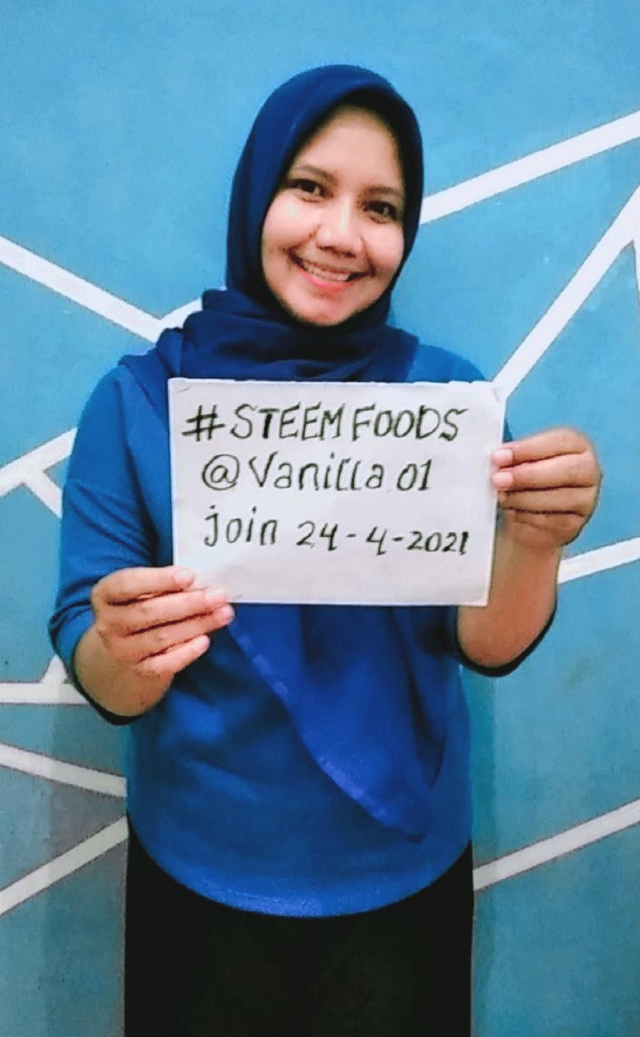 #STEEM FOODS
@Vanilla 01
join 24-4-2021